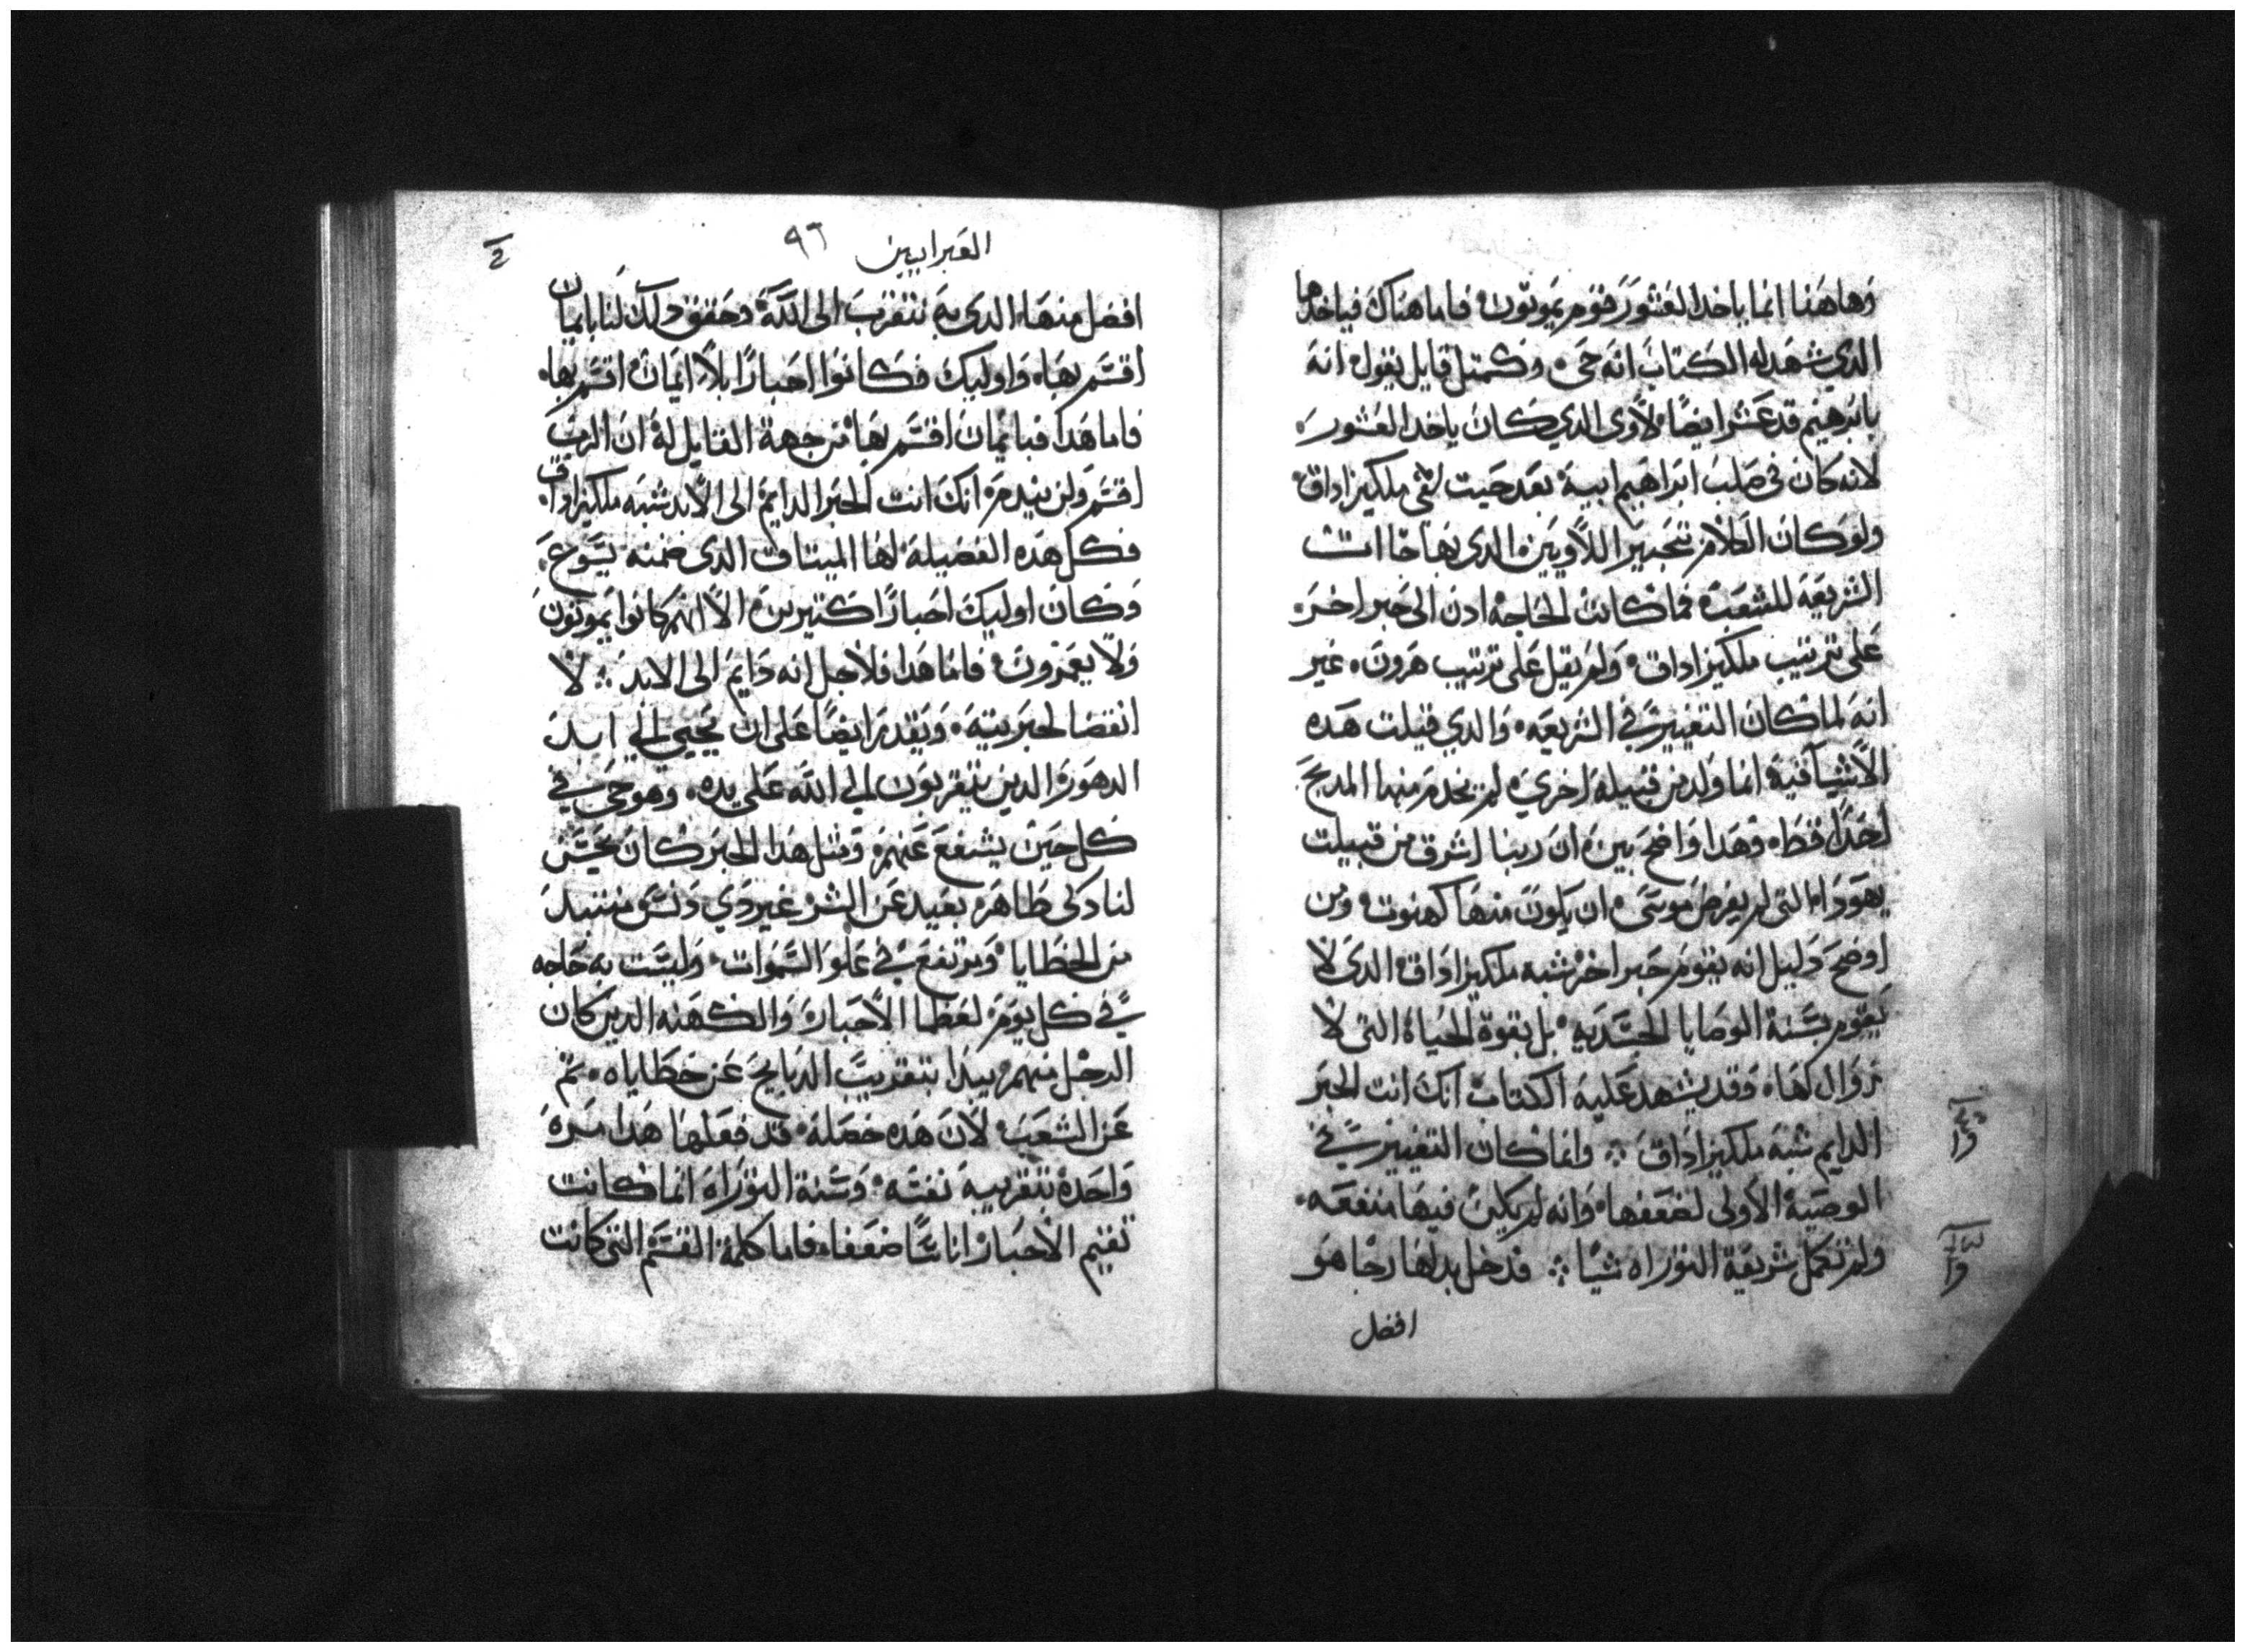 وهاهنا انما ياخد العشور قوم يموتون فاما هناك فياخدها
الدي شهد له الكتاب انه حي وكمتل قايل يقول انه
بابرهيم قد عشر ايضا لاوى الدي كان ياخد العشور
لانه كان في صلب ابراهيم ابيه بعد حيت لقى ملكيزاداق
ولو كان الكلام بتحبير اللاويين الدى بها جاات
الشريعه للشعب فما كانت الحاجه ادن الى حبر اخر
على ترتيب ملكيزاداق ولم يقل على ترتيب هرون غير
انه لما كان التغيير في الشريعه والدي قيلت هده
الاشيا فيه انما ولد من قبيله اخري لم يخدم منها المدبح
احدا قط وهدا واضح بين ان ربنا اشرق من قبيلت
يهودا التى لم يفرض موسى ان يكون منها كهنوت ومن
اوضح دليل انه يقوم حبر اخر شبه ملكيزاداق الدى لا
يقوم بسنة الوصايا الجسديه بل بقوة الحياة التى لا
زوال لها وقد يشهد عليه الكتاب انك انت الحبر
الدايم شبه ملكيزاداق وانما كان التغيير في
الوصية الاولى لضعفها وانه لم يكن فيها منفعه
ولم تكمل شريعة التوراه شيا قد خل بدلها رجا هو
افضل
العبرانيين ٩٦
افضل منها الدى به نتقرب الى الله وحقق دلك لنا بايمان
اقسم بها واوليك فكانوا احبارا بلا ايمان اقسم بها
فاما هدا فبايمان اقسم بها من جهة القايل له ان الرب
اقسم ولن يندم انك انت الحبر الدايم الى الابد شبه ملكيزاداق
فكل هده الفضيلة لها الميتاق الدى ضمنه يسوع
وكان اوليك احبارا كتيرين الا انهم كانوا يموتون
ولا يعمرون فاما هدا فلاجل انه دايم الى الابد لا
انقضا لحبريته ويقدر ايضا على ان يحيي الي ابد
الدهور الدين يتقربون الي الله على يده وهو حي في
كل حين يشفع عنهم ومتل هدا الحبر كان يحسن
لنا دكى طاهر بعيد عن الشر غير دي دنس منتبد
من الخطايا ويرتفع في علو السموات وليست به حاجه
في كل يوم لعظما الاحبار والكهنه الدين كان
الرجل منهم يبدا بتقريب الدبايح عن خطاياه تم
عن الشعب لان هده خصلة قد فعلها هدا مره
واحدة بتقريبه نفسه وسنة التوراه انما كانت
تقيم الاحبار اناسا ضعفا فاما كلمة القسم التى كانت